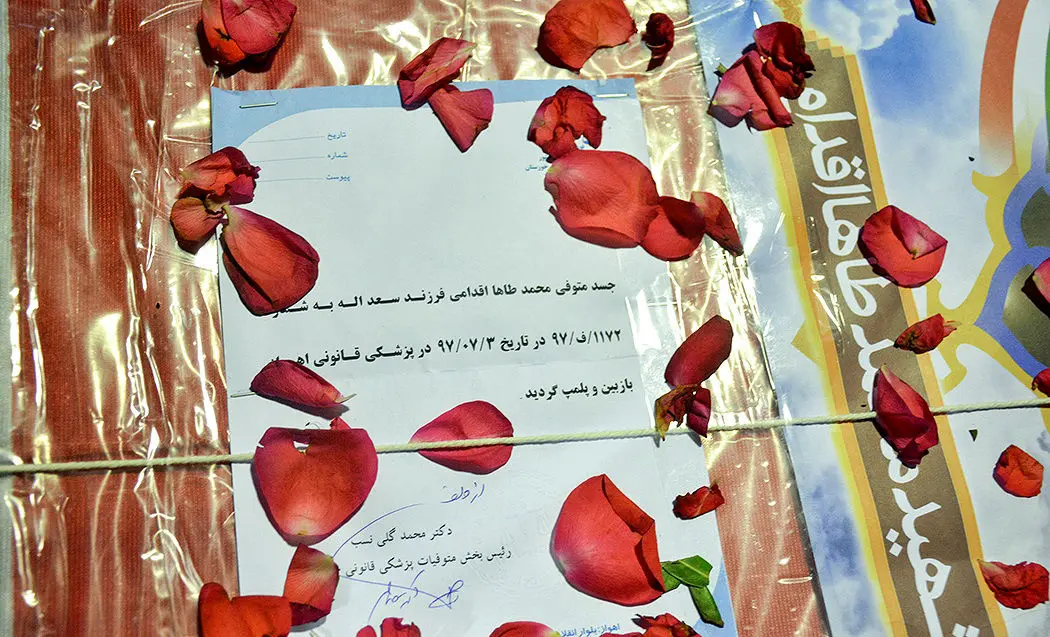 تاریخ
شماره
پیوست
جسد متوفی محمد طاها اقدامی فرزند سعد اله به
۱۱۷۲/ف/۹۷ در تاریخ ۹۷/۰۷/۳ در پزشکی قانونی
بازبین و پلمپ گردید.
از طرف
دکتر محمد گلی نسب
رئیس بخش متوفیات پزشکی قانونی
اهواز: بلوار
شهید محمد طاها اقدامی